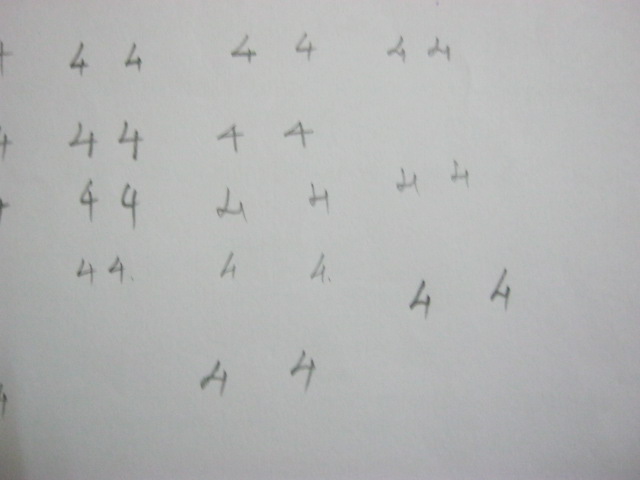 4 4 4 4 4 4 4
4 4 4 4 4
4 4 4 4 4 4 4
4 4. 4 4. 4 4
4 4 4